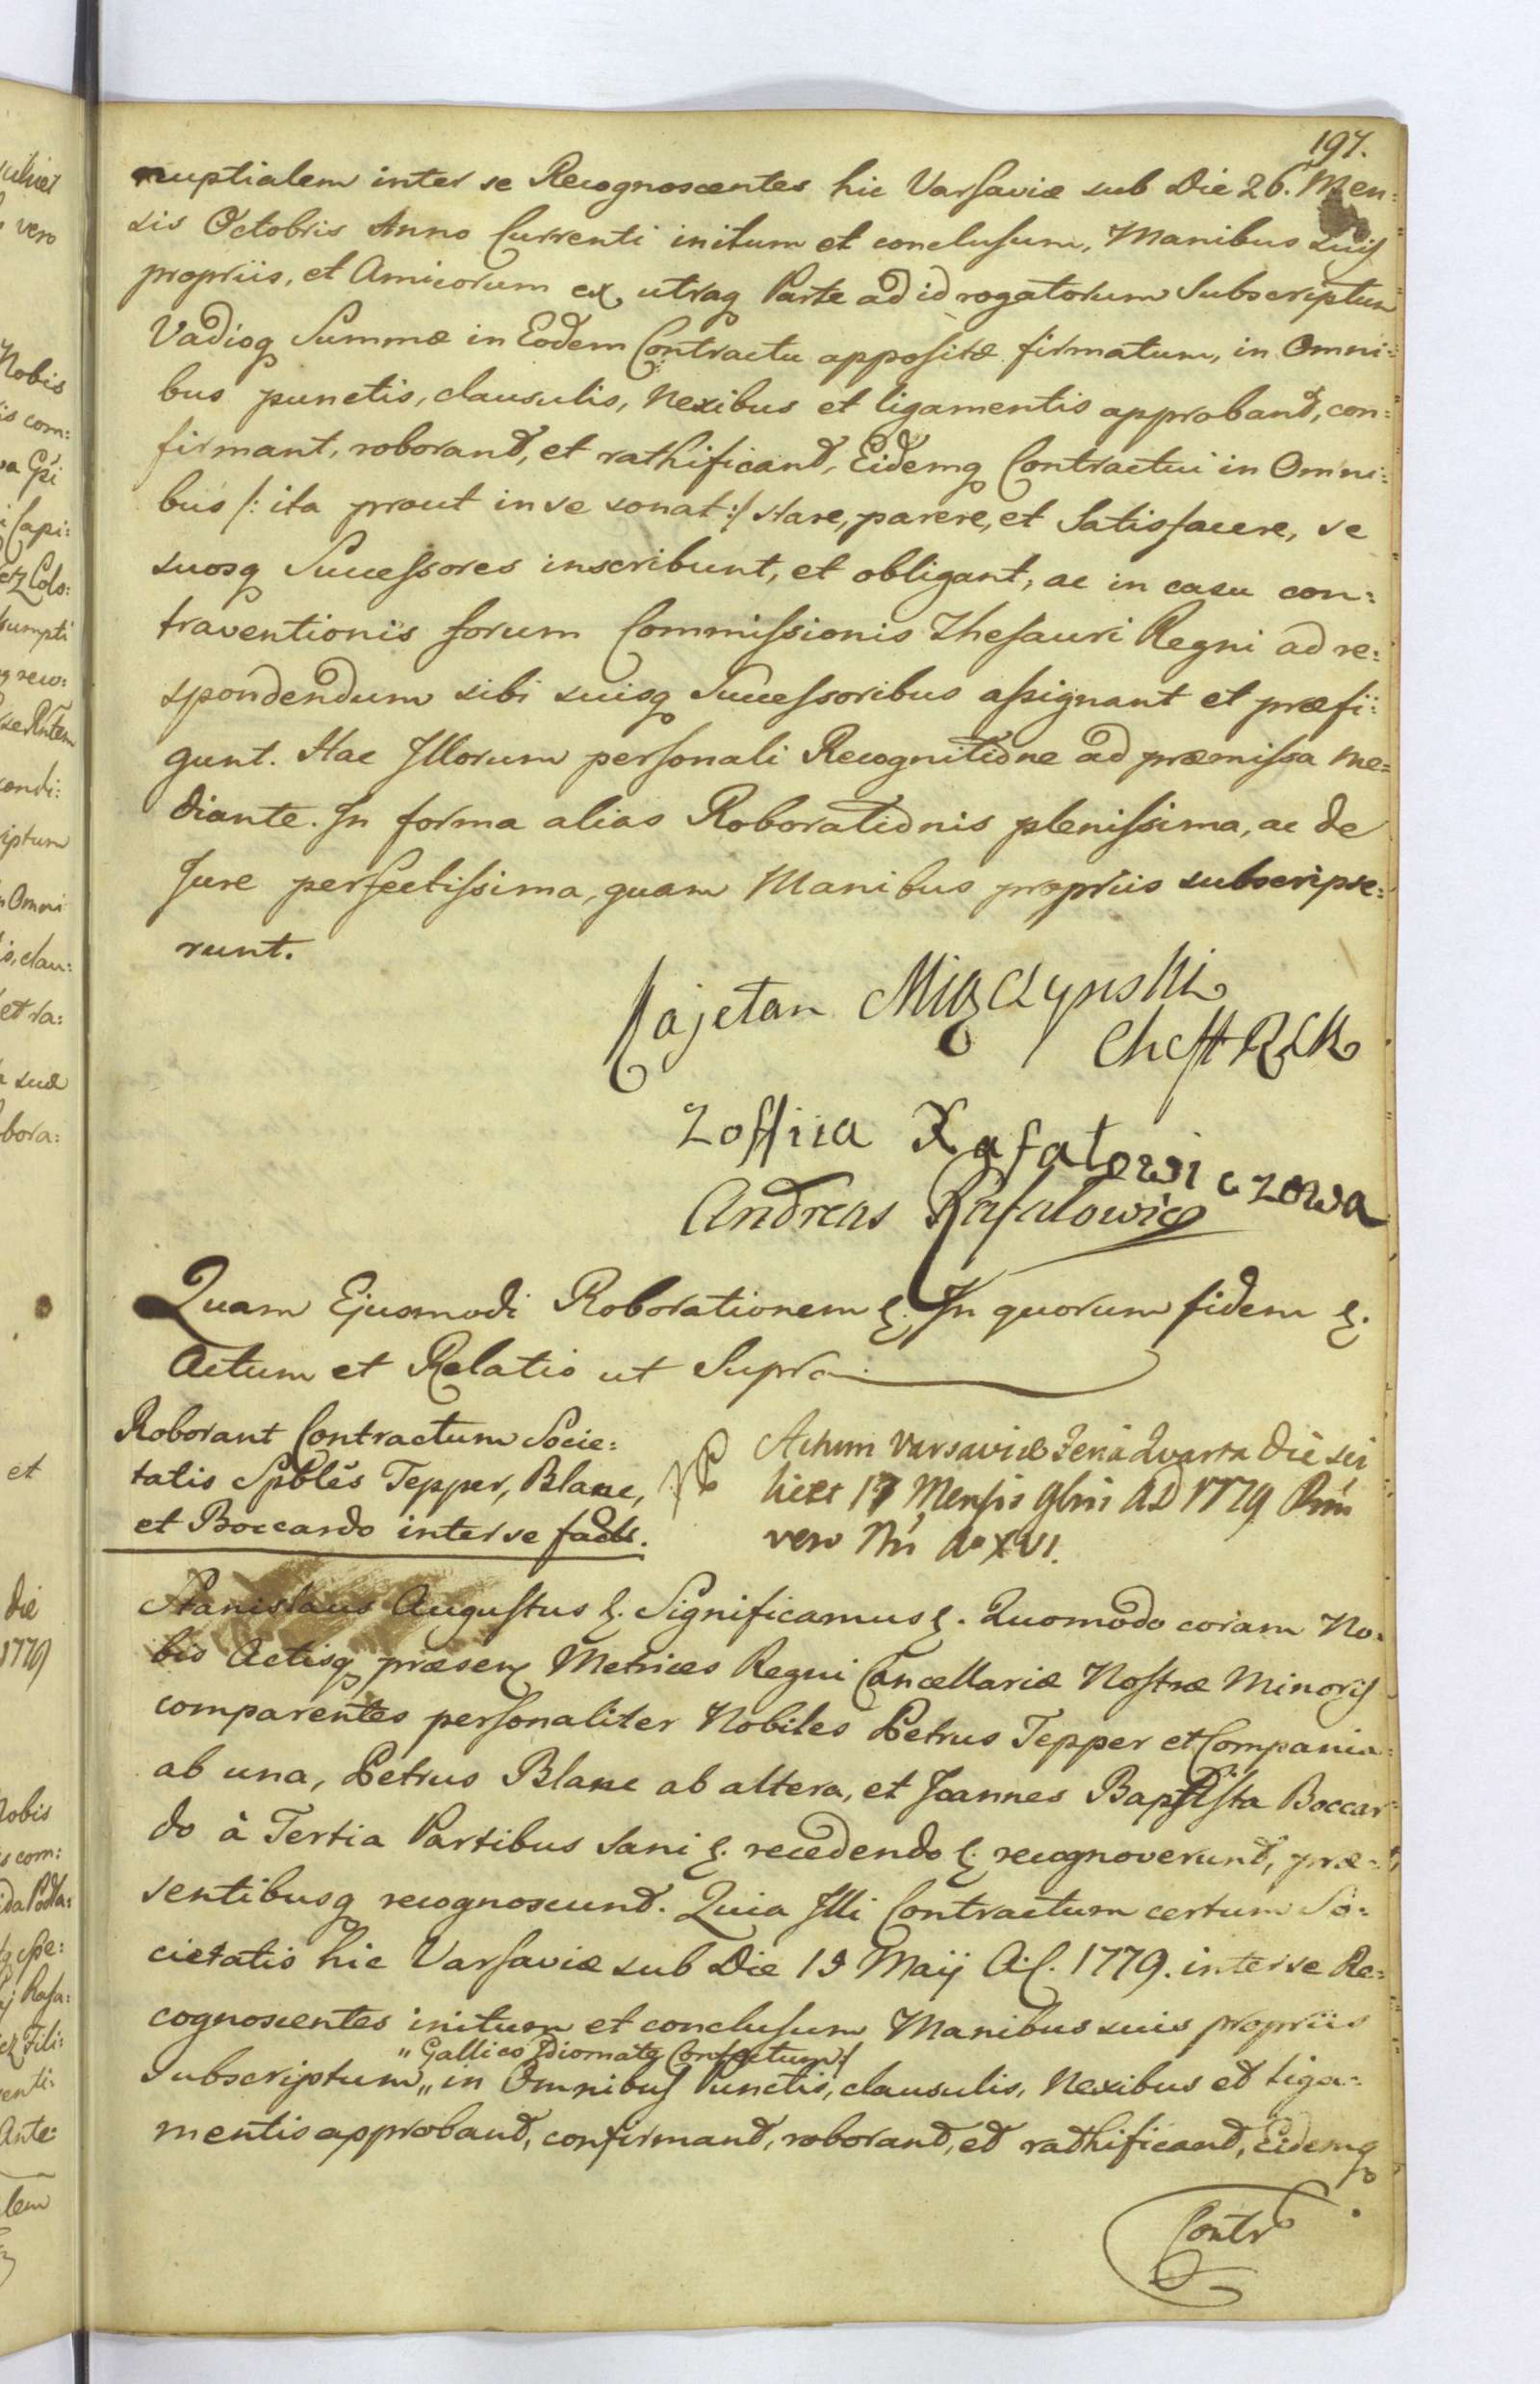 197.
nuptialem inter se Recognoscentes hic Varsaviæ sub Die 26. Men:
sis Octobris Anno Currenti initum et conclusum, Manibus suis
propriis, et Amicorum ex utraq Parte ad id rogatorum Subscriptum
Vadioq Summæ in Eodem Contractu appositæ firmatum, in Omni:
bus punctis, clausulis, Nexibus et ligamentis approband, con:
firmant, roborand, et rathificand, Eidemq Contractui in Omni:
bus /: ita prout in se sonat :/ stare, parere, et Satisfacere, se
suosq Successores inscribunt, et obligant, ac in casu con:
traventionis forum Commissionis Thesauri Regni ad re:
spondendum sibi suisq Successoribus assignant et præfi:
gunt. Hac Illorum personali Recognitione ad præmissa me=
diante. In forma alias Roborationis plenissima, ac de
Jure perfectissima, quam Manibus propriis subscripse:
runt.
Kajetan Miączynski
Zoffiia Rafałowiczowa
Andreas Rafalowicz
Quam Ejusmodi Roborationem &. In quorum fidem &.
Actum et Relatio ut Supra.
Roborant Contractum Socie:
tatis Spblēs Tepper, Blanc,
et Boccardo inter se fact.
Actum Varsaviæ Feria Quarta die sci
licet 17 Mensis 9bris AD 1779 Rni
vero Nri Ao XVI.
Stanislaus Augustus &. Significamus &. Quomodo coram No:
bis Actisq præsen Metrices Regni Cancellariæ Nostræ Minoris
comparentes personaliter Nobiles Petrus Tepper et Compania
ab una, Petrus Blanc ab altera, et Joannes Baptista Boccar:
do à Tertia Partibus Sani &. recedendo &. recognoverund, præ:
sentibusq recognoscund. Quia Illi Contractum certum So:
cietatis hic Varsaviæ sub Die 19 Maij A.C. 1779. inter se Re:
cognoscentes initum et conclusum Manibus suis propriis
" Gallico Idiomate Confectum/
Subscriptum,, in Omnibus Punctis, clausulis, Nexibus ed Liga:
mentis approband, confirmand, roborand, ed rathificand, Eidemq
Contr